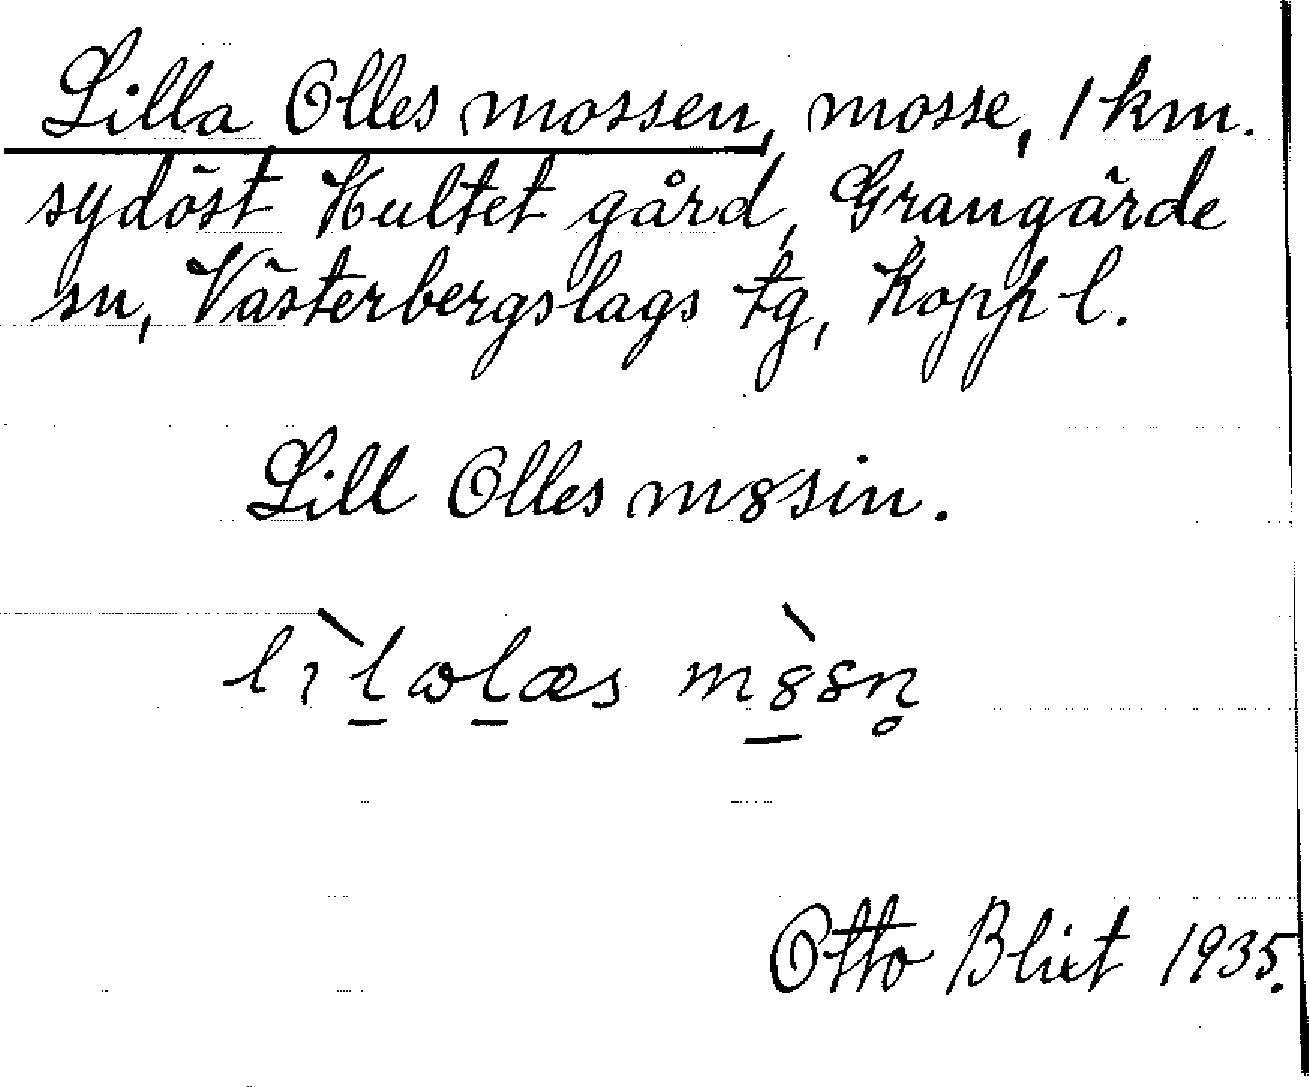 Lilla Olles mossen, mosse, 1 km.
sydöst Hultet gård, Grangärde
sn, Västerbergslags tg, Kopp l.
Lill Olles m8sin.
lılɷlæs m88n̥
Otto Blixt 1935.